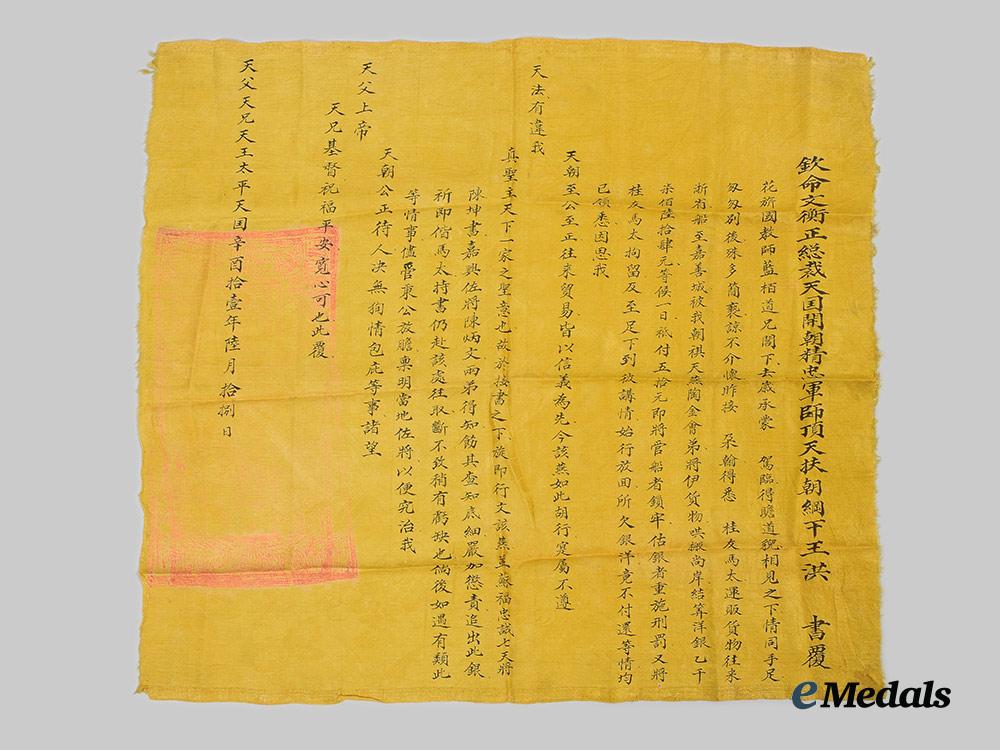 欽命文衡正總裁天囯開朝精忠軍師頂天扶朝綱干王洪 書覆
花旂國教師藍栢道兄閣下去歲承蒙 駕臨得瞻道貌相見之下情同手足
匆匆別後殊多簡褻諒不介懷昨接 朶翰得悉 桂友馬太運販貨物往來
浙省船至嘉善城被我朝祺天燕陶金會弟將伊貨物哄搬尚岸結算洋銀乙千
柒佰陸拾肆元等候一日祇付五拾元即將管船者鎖牢估銀者重施刑罰又將
桂友馬太拘留及至足下到彼講情始行放回所欠銀洋竟不付還等情均
已領悉因思我
天朝至公至正往來貿易皆以信義為先今該燕如此胡行寔屬不遵
天法有違我
真聖主天下一家之聖意也茲於接書之下旋即行文該燕並蘇福忠誠七天將
陳坤書嘉興佐將陳炳文兩弟得知飭其查知底細嚴加懲責追出此銀
祈即偕馬太持書仍赴該處往取斷不致稍有虧缺也倘後如遇有類此
等情事儘管秉公放膽稟明當地佐將以便究治我
天朝公正待人決無狥情包庇等事諸望
天父上帝
天兄基督祝福平安寬心可也此覆
天父天兄天王太平天囯辛酉拾壹年陸月拾捌日
eMedals